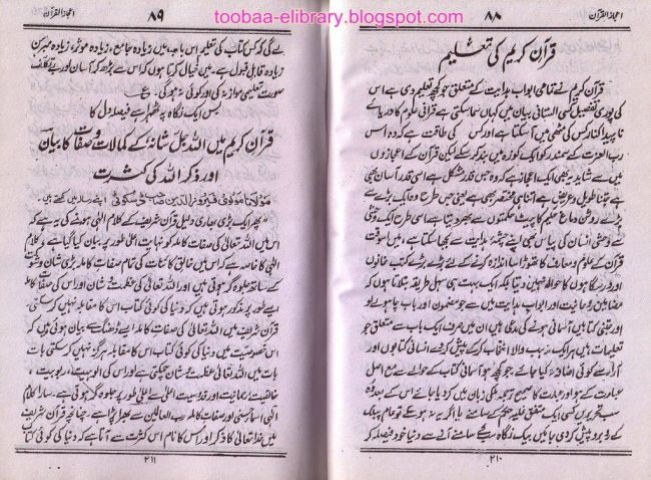 toobaa-elibrary.blogspot.com
اعجاز القرآن
۸۸
قرآن کریم کی تعلیم
قرآن کریم نے تمامی ابواب ہدایت کے متعلق جو کچھ تعلیم دی ہے اس
کی پوری تفصیل کسی انسانی بیان میں کہاں سما سکتی ہے قرآنی علوم کا دریائے
ناپیدا کنار کس کی مٹھی میں آسکتا ہے اور کس کی طاقت ہے کہ وہ اس
رب العزت کے سمندر کو ایک کوزہ میں بند کر سکے لیکن قرآن کے اعجازوں
میں سے شاید یہ بھی ایک اعجاز ہے کہ وہ جس قدر مشکل ہے اسی قدر آسان بھی
ہے جتنا طویل و عریض ہے اتنا ہی مختصر بھی ہے یعنی جس طرح وہ ایک بڑے سے
بڑے روشن دماغ حکیم کا پیٹ حکمتوں سے بھر دیتا ہے اسی طرح ایک وحشی
سے وحشی انسان کی پیاس بھی اپنے چشمہ ہدایت سے بجھا سکتا ہے، میں اسوقت
قرآن کے علوم و معارف کا تھوڑا سا اندازہ کرنے کے لئے بڑے بڑے کتب خانوں
اور درسگاہوں کا حوالہ نہیں دیتا بلکہ ایک بہت ہی سہل طریقہ بتلاتا ہوں کہ
مضامین روحانیت اور ابواب ہدایت میں سے جو مضمون اور باب چاہو لے لو
اور جتنی کتابیں آسمانی ہونے کی مدعی ہیں ان میں صرف ایک باب سے متعلق جو
تعلیمات ہیں ہر ایک مذہب والا انتخاب کر کے پیش کر دے انسانی کتابوں اور
آراء سے کوئی اضافہ نہ کیا جائے جو کچھ ہو آسمانی کتاب کے حوالے سے مع اصل
عبارت کے ہو اور عبارت کا صحیح ترجمہ ملکی زبان میں کر دیا جائے اس کے بعد وہ
سب تحریریں کسی ایک متفق علیہ حکم کے سامنے یا اگر یہ نہ ہو سکے تو عام پبلک
کے روبرو پیش کر دی جائیں بیک نگاہ سب کے سامنے آنے سے دنیا خود فیصلہ کر
۲۱۰
۸۹
اعجاز القرآن
لے گی کہ کس کتاب کی تعلیم اس باب میں زیادہ جامع، زیادہ موثر، زیادہ مبرہن
زیادہ قابل قبول ہے، میں خیال کرتا ہوں کہ اس سے بڑھ کر آسان اور بے تکلف
صورت تعلیمی موازنہ کی اور کوئی نہ ہوگی۔
بس ایک نگاہ پہ ٹھہرا ہے فیصلہ دل کا
قرآن کریم میں اللہ جل شانہ کے کمالات و صفات کا بیان
اور ذکر اللہ کی کثرت
مولانا مولوی فیروز الدین صاحب اپنے رسالہ میں لکھتے ہیں۔
پھر ایک بڑی بھاری دلیل قرآن شریف کے کلام الٰہی ہونے کی یہ ہے کہ
اس میں اللہ تعالیٰ کی صفات کاملہ کو نہایت اعلیٰ طور پر بیان کیا گیا ہے و کلام
الٰہی کا خاصہ ہے کہ اس میں خالق کائنات کی تمام صفات کاملہ بڑی شان و شوکت
کے ساتھ جلوہ گر ہوتی ہیں اور اللہ تعالیٰ کی عظمت و شان اور اس کی صفات کاملہ
ایسے طور پر مذکور ہوتی ہیں کہ دنیا کی کوئی کتاب اس کا مقابلہ نہیں کر سکتی،
قرآن شریف میں اللہ تعالیٰ کی صفات کاملہ ایسے ڈھنگ سے بیان ہوئی ہیں کہ
اس خصوصیت میں دنیا کی کوئی کتاب اس کا مقابلہ ہرگز نہیں کر سکتی بات
بات میں اللہ تعالیٰ عظمت و شان ٹپکتی ہے اور اس کی الوہیت، ربوبیت،
خالقیت رحمانیت اور قدوسیت اعلیٰ سے اعلیٰ طور پر جلوہ گر ہوتی ہے، سارا کلام
الٰہی اسماء حسنیٰ اور صفات کاملہ رب العالمین سے بھرا پڑا ہے، چنانچہ قرآن شریف
میں خدا تعالیٰ کا ذکر اور اس کا نام اس کثرت سے آتا ہے کہ دنیا کی کوئی کتاب
۲۱۱